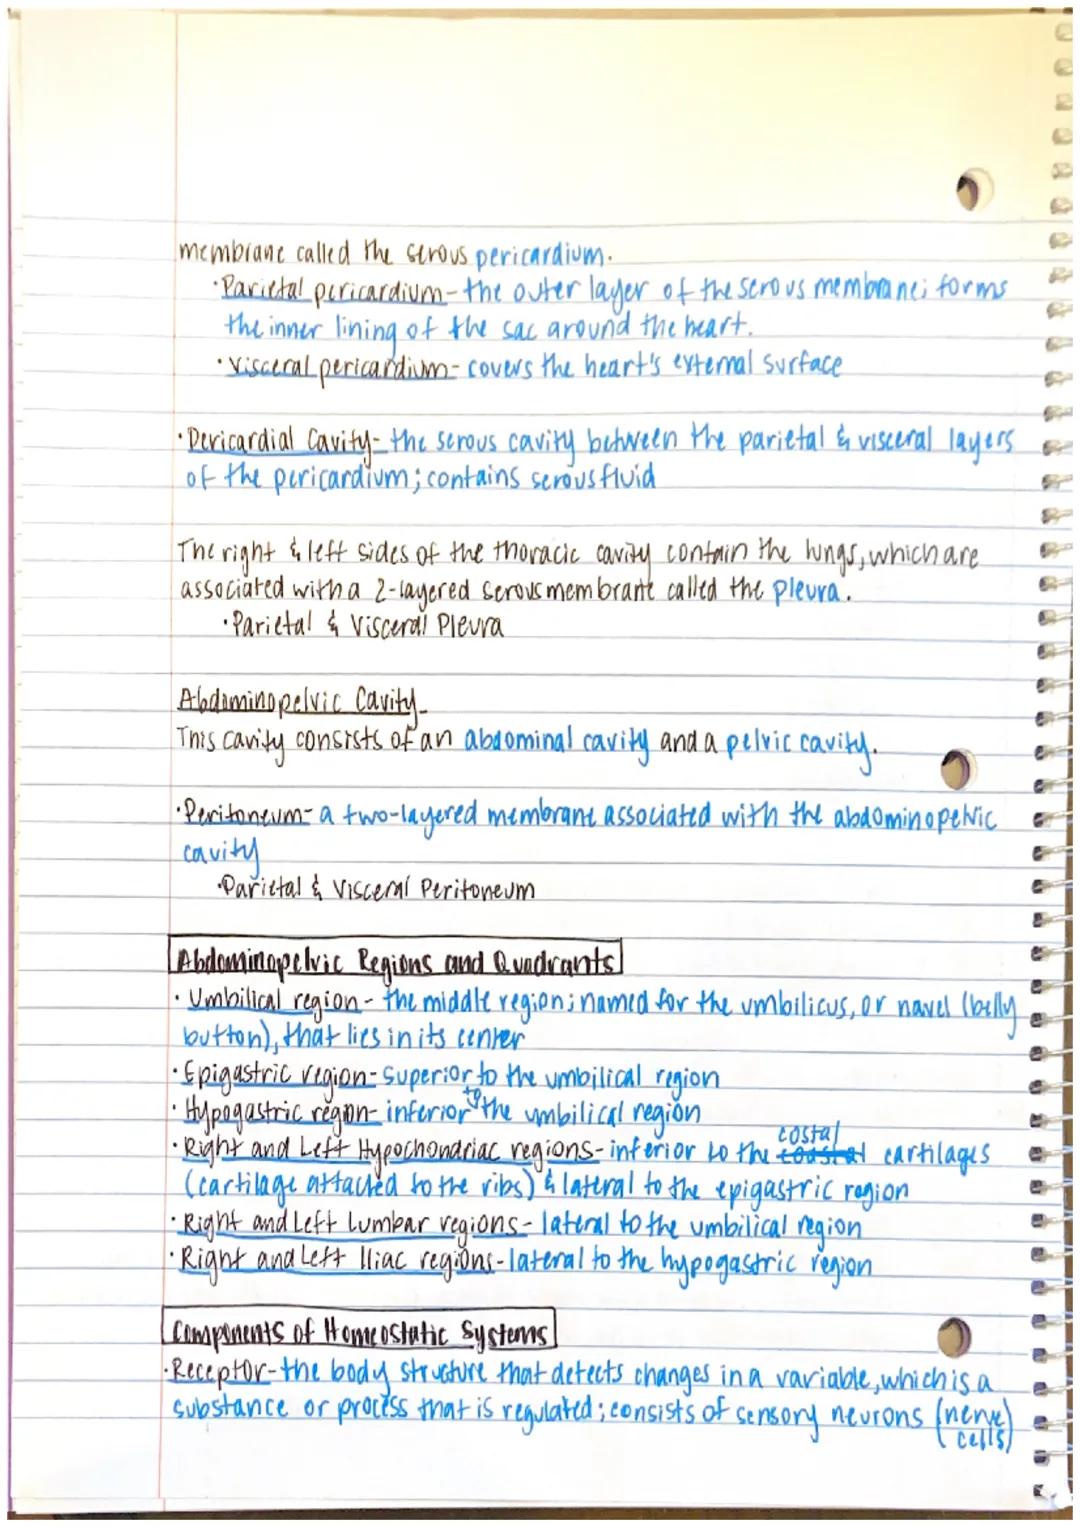 membrane called the serous pericardium.
·Parietal pericardium- the outer layer of the serous membrane; forms
the inner lining of the sac around the heart.
·Visceral pericardium- covers the heart's external surface
·Pericardial Cavity- the serous cavity between the parietal & visceral layers
of the pericardium; contains serous fluid
The right & left sides of the thoracic cavity contain the lungs, which are
associated with a 2-layered serous membrane called the pleura.
·Parietal & Visceral Pleura
Abdominopelvic Cavity-
This cavity consists of an abdominal cavity and a pelvic cavity.
·Peritoneum- a two-layered membrane associated with the abdominopelvic
cavity
·Parietal & Visceral Peritoneum
Abdominopelvic Regions and Quadrants
· Umbilical region- the middle region; named for the umbilicus, or navel (belly
button), that lies in its center
·Epigastric region- superior to the umbilical region
· Hypogastric region- inferior to the umbilical region
·Right and Left Hypochondriac regions- inferior to the coastal costal cartilages
(cartilage attached to the ribs) & lateral to the epigastric region
·Right and Left Lumbar regions- lateral to the umbilical region
·Right and Left Iliac regions- lateral to the hypogastric region
Components of Homeostatic Systems
·Receptor- the body structure that detects changes in a variable, which is a
substance or process that is regulated; consists of sensory neurons (nerve
cells)